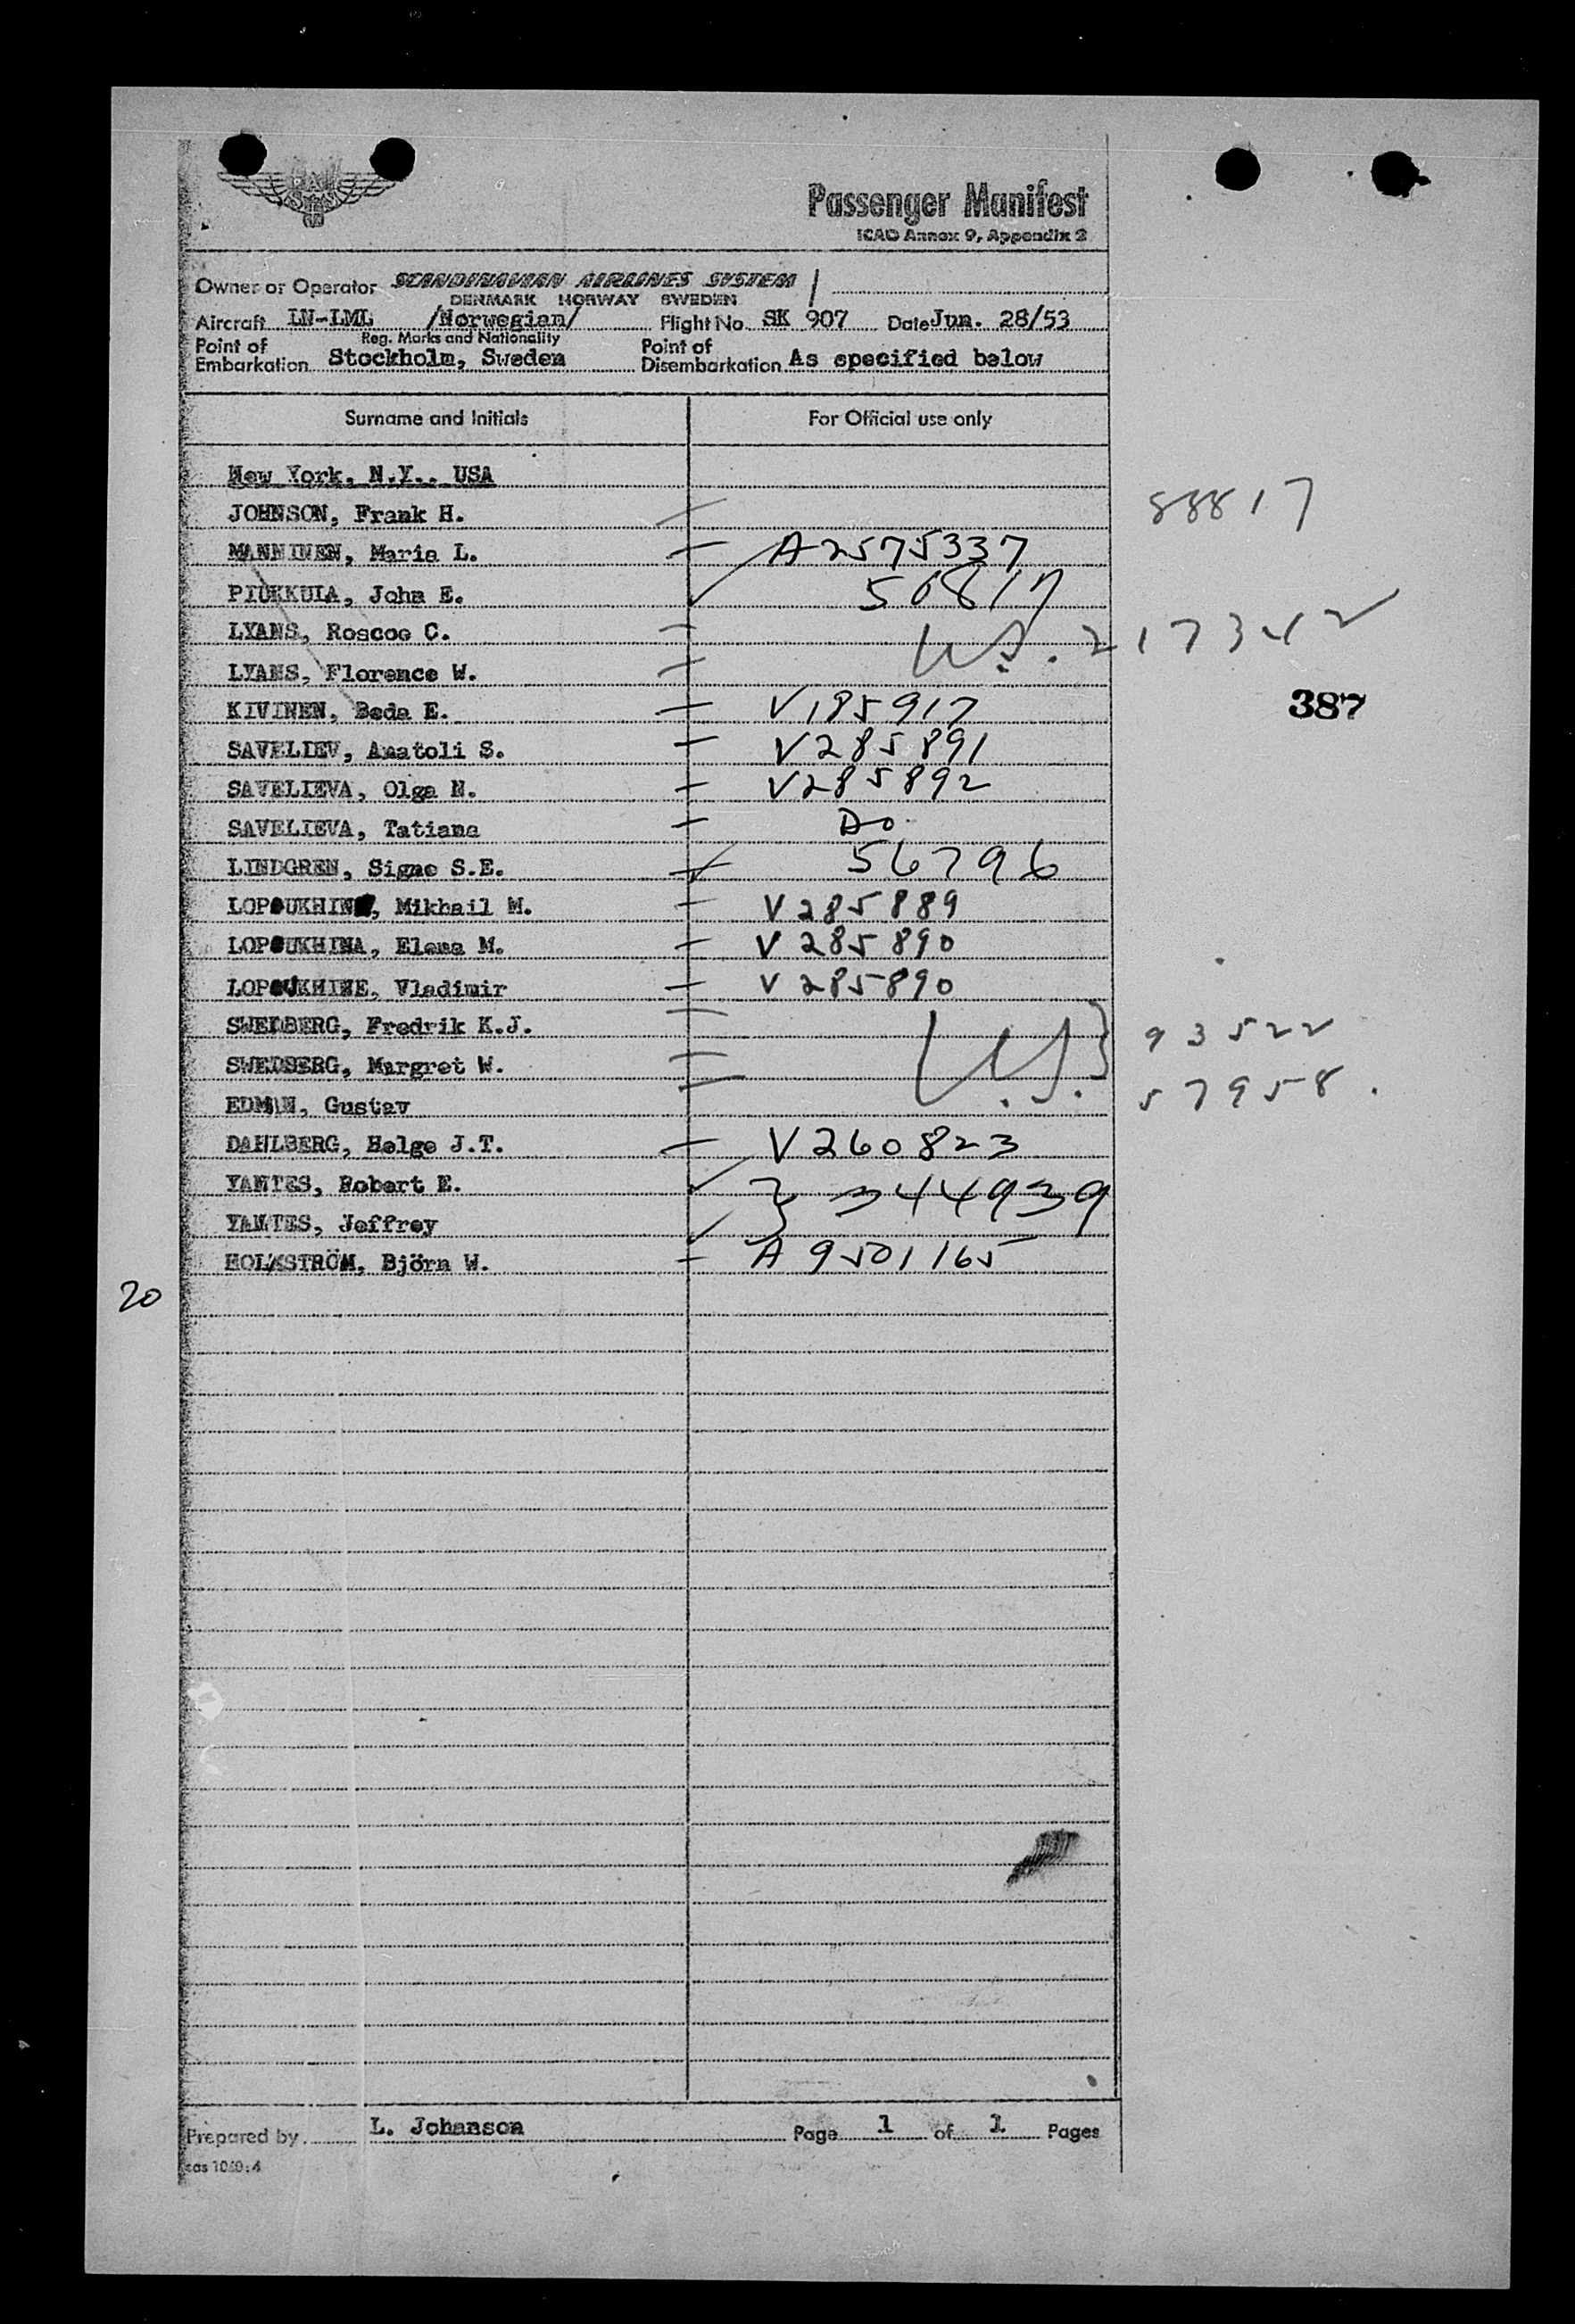 Passenger Manifest
ICAO Annex 9, Appendix 2
Owner or Operator SCANDINAVIAN AIRLINES SYSTEM
DENMARK NORWAY SWEDEN
Aircraft LN-LML /Norwegian/ Flight No. SK 907 Date Jun. 28/53
Reg. Marks and Nationality
Point of Embarkation Stockholm, Sweden Point of Disembarkation As specified below
Surname and Initials For Official use only
New York, N.Y., USA
JOHNSON, Frank H. 88817
MANNINEN, Maria L. A2575337
PIUKKULA, John E. 56817
LYANS, Roscoe C. U.S. 217342
LYANS, Florence W.
387
KIVINEN, Beda E. V185917
SAVELIEV, Anatoli S. V285891
SAVELIEVA, Olga N. V285892
SAVELIEVA, Tatiana Do
LINDGREN, Signe S.E. 56796
LOPOUKHINE, Mikhail M. V285889
LOPOUKHINA, Elena M. V285890
LOPOUKHINE, Vladimir V285890
SWEDBERG, Fredrik K.J. U.S. } 93522
SWEDBERG, Margret W.
EDMAN, Gustav 57958.
DAHLBERG, Helge J.T. V260823
YANTES, Robert E. } 344939
YANTES, Jeffrey
HOLMSTRÖM, Björn W. A9501165
20
Prepared by L. Johanson Page 1 of 1 Pages